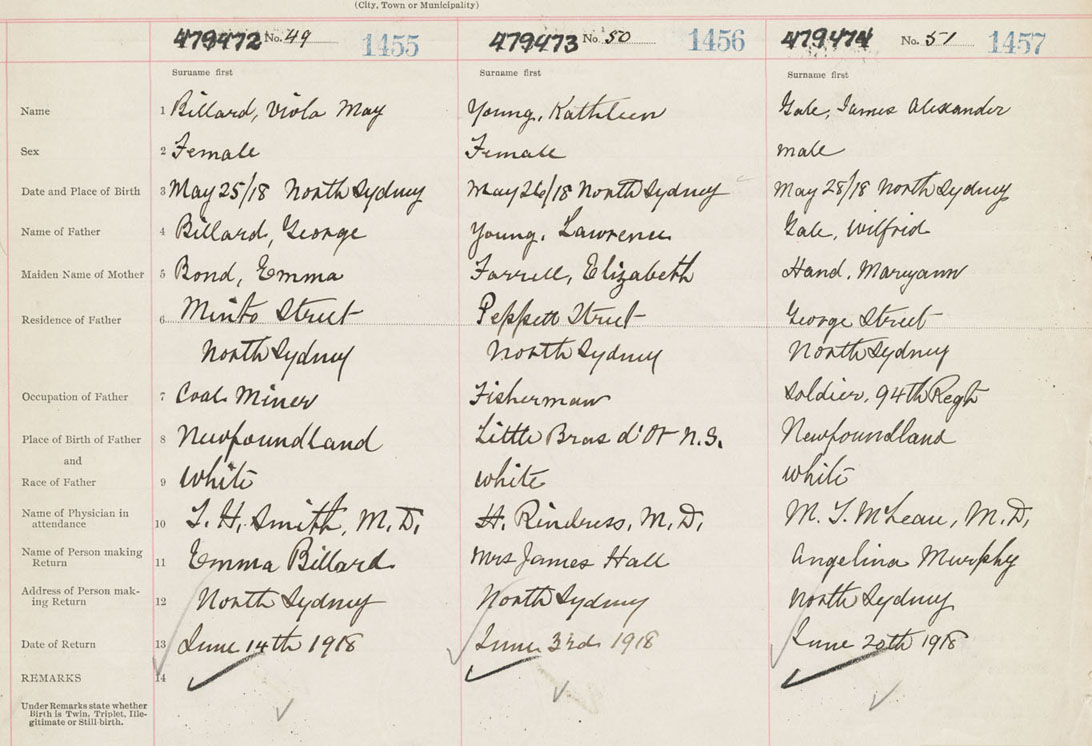 (City, Town or Municipality)
479472 No. 49 1455 479473 No. 50 1456 479474 No. 51 1457
Surname first Surname first Surname first
Name 1 Billard, Viola May Young, Kathleen Gale, James Alexander
Sex 2 Female Female male
Date and Place of Birth 3 May 25/18 North Sydney May 26/18 North Sydney May 28/18 North Sydney
Name of Father 4 Billard, George Young, Lawrence Gale, Wilfrid
Maiden Name of Mother 5 Bond, Emma Farrell, Elizabeth Hand, Maryann
Residence of Father 6 Minto Street Peppett Street George Street
North Sydney North Sydney North Sydney
Occupation of Father 7 Coal Miner Fisherman Soldier, 94th Regt
Place of Birth of Father 8 Newfoundland Little Bras d'Or N.S. Newfoundland
and
Race of Father 9 White white white
Name of Physician in
attendance 10 L. H. Smith, M.D. H. Rindress, M.D. M. T. McLean, M.D.
Name of Person making
Return 11 Emma Billard Mrs James Hall Angelina Murphy
Address of Person mak-
ing Return 12 North Sydney North Sydney North Sydney
Date of Return 13 June 14th 1918 June 3rd 1918 June 20th 1918
REMARKS 14
Under Remarks state whether
Birth is Twin, Triplet, Ille-
gitimate or Still-birth.